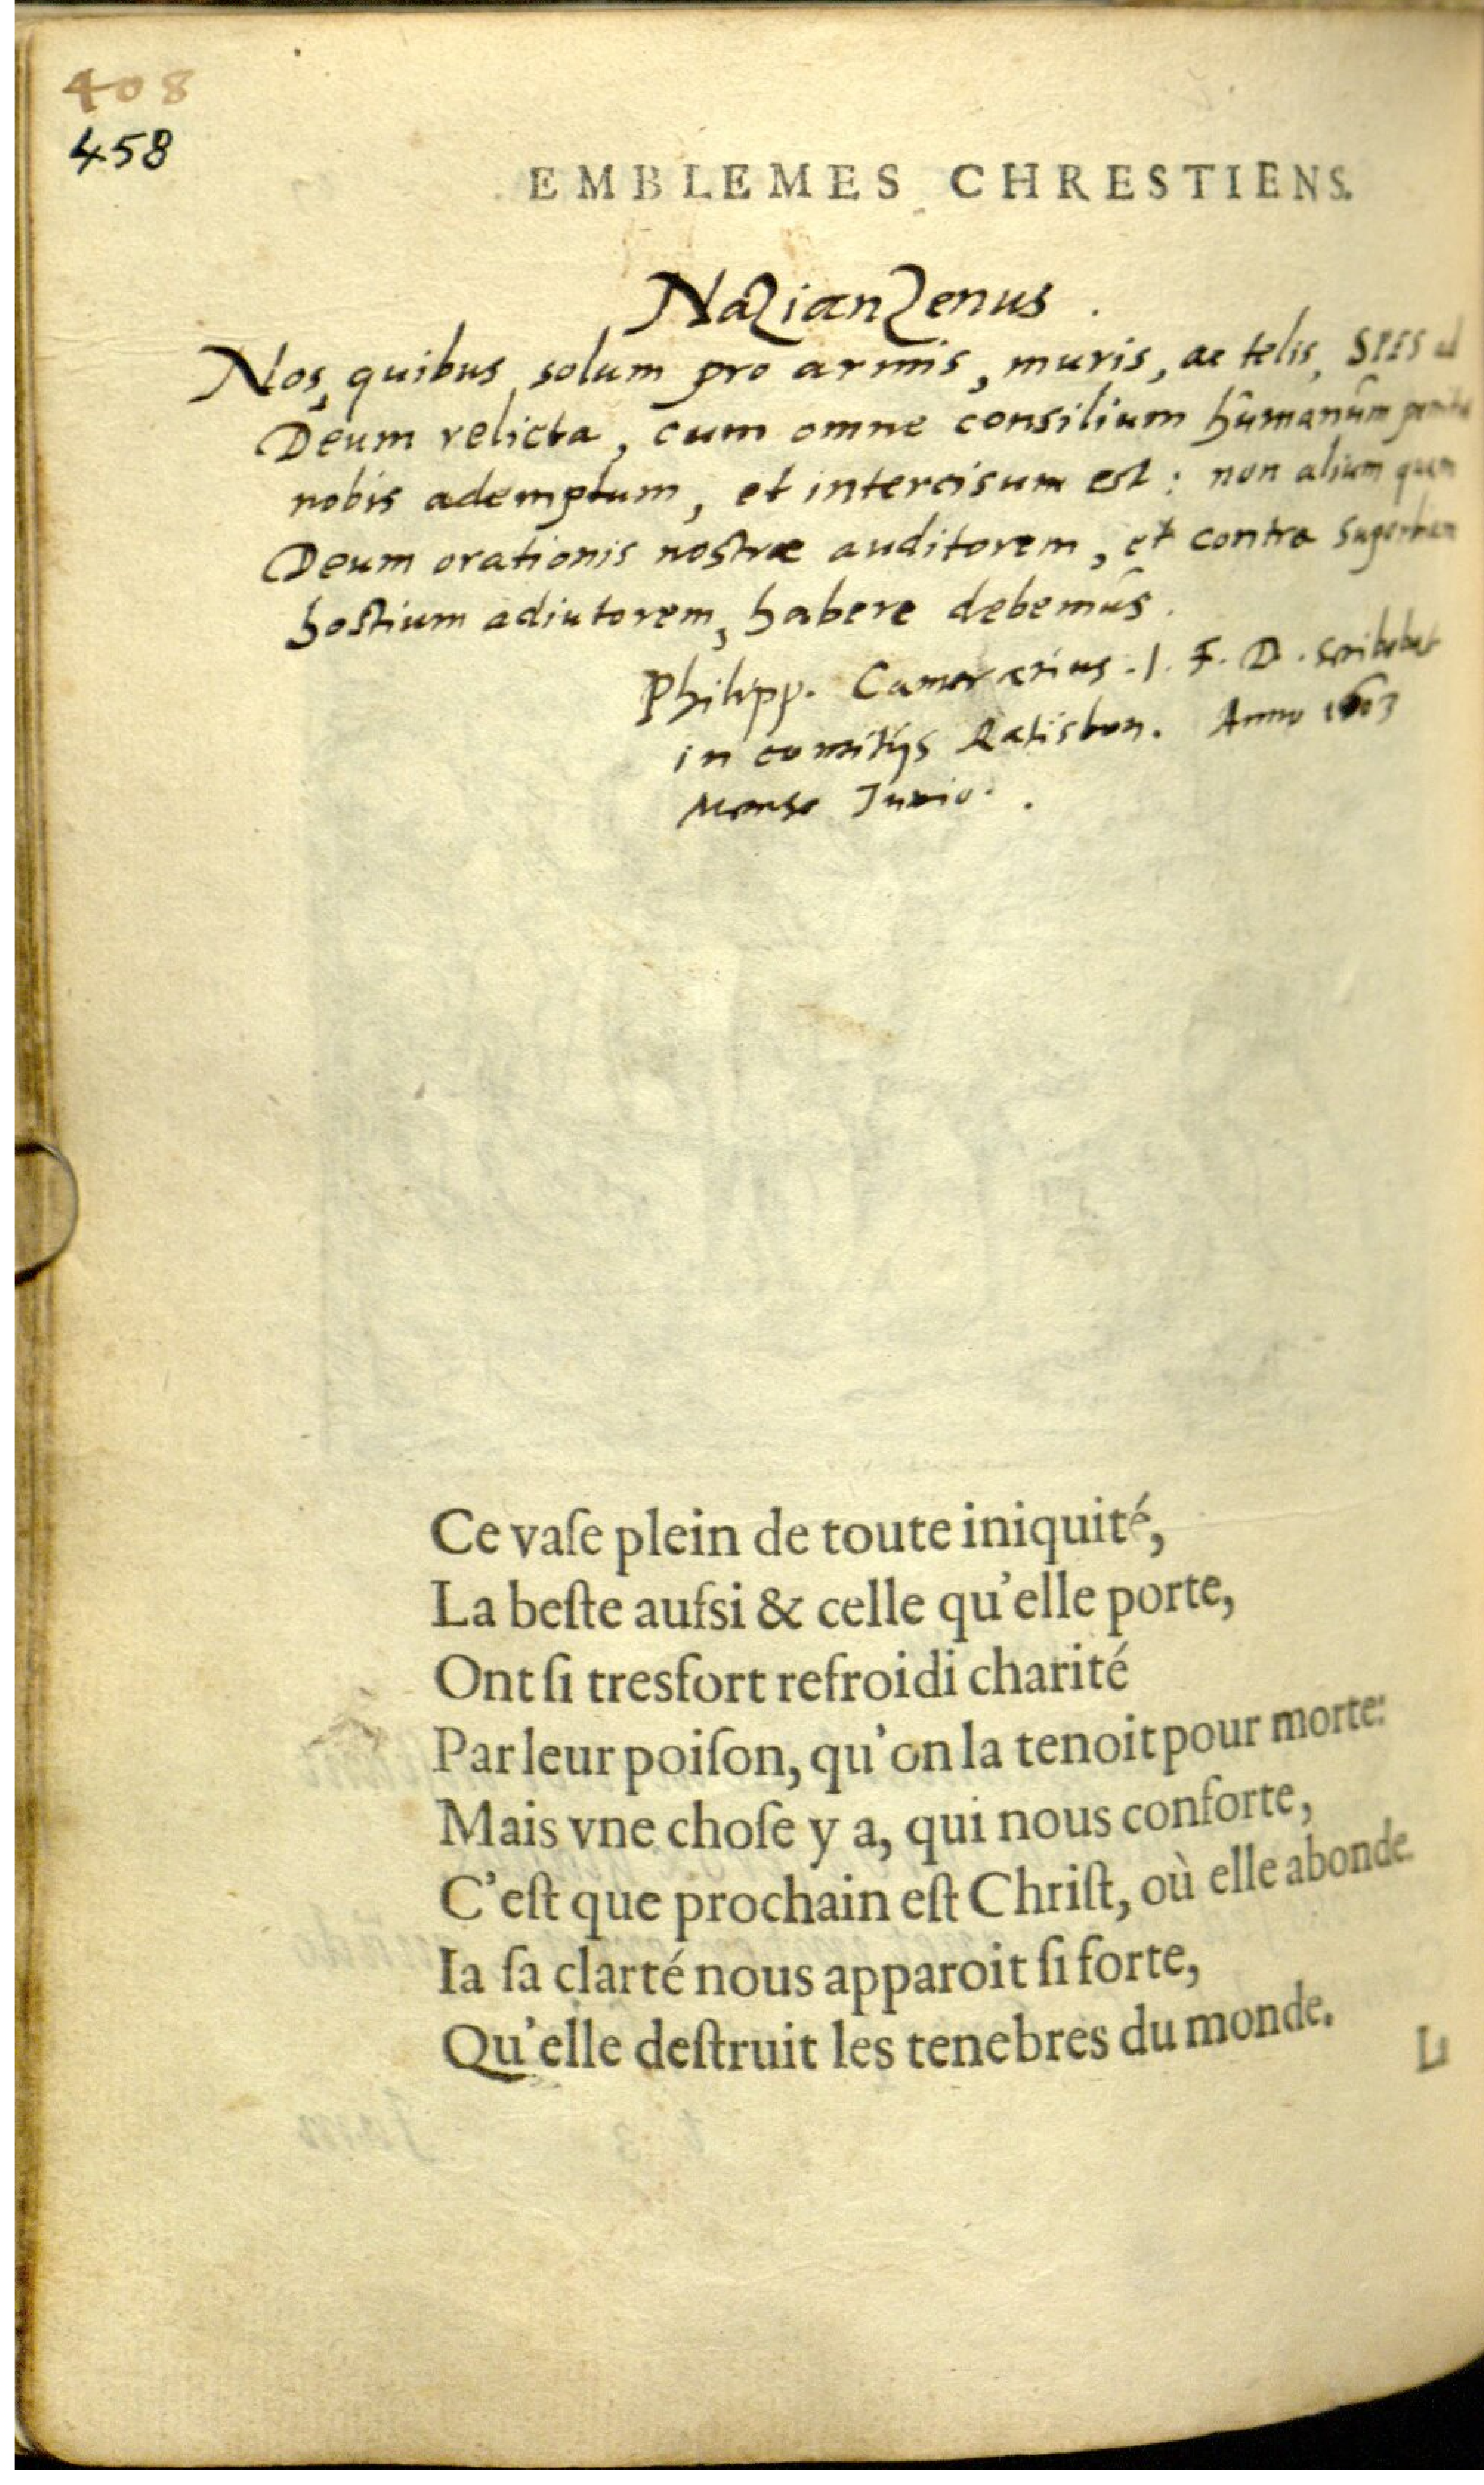 408
458
EMBLEMES CHRESTIENS.
Nazianzenus.
Nos, quibus solum pro armis, muris, ac telis, SPES ad
Deum relicta, cum omne consilium humanum
nobis ademptum, et intercisum est: non alium quam
Deum orationis nostræ auditorem, et contra
hostium adiutorem, habere debemus.
Philipp. Camerarius. I. F. D. scribebat
in comitijs Ratisbon. Anno 1603
Mense Junio.
Ce vaſe plein de toute iniquité,
La beſte auſsi & celle qu'elle porte,
Ont ſi tresfort refroidi charité
Par leur poiſon, qu'on la tenoit pour morte:
Mais vne choſe y a, qui nous conforte,
C'eſt que prochain eſt Chriſt, où elle abonde.
Ia ſa clarté nous apparoit ſi forte,
Qu'elle deſtruit les tenebres du monde.